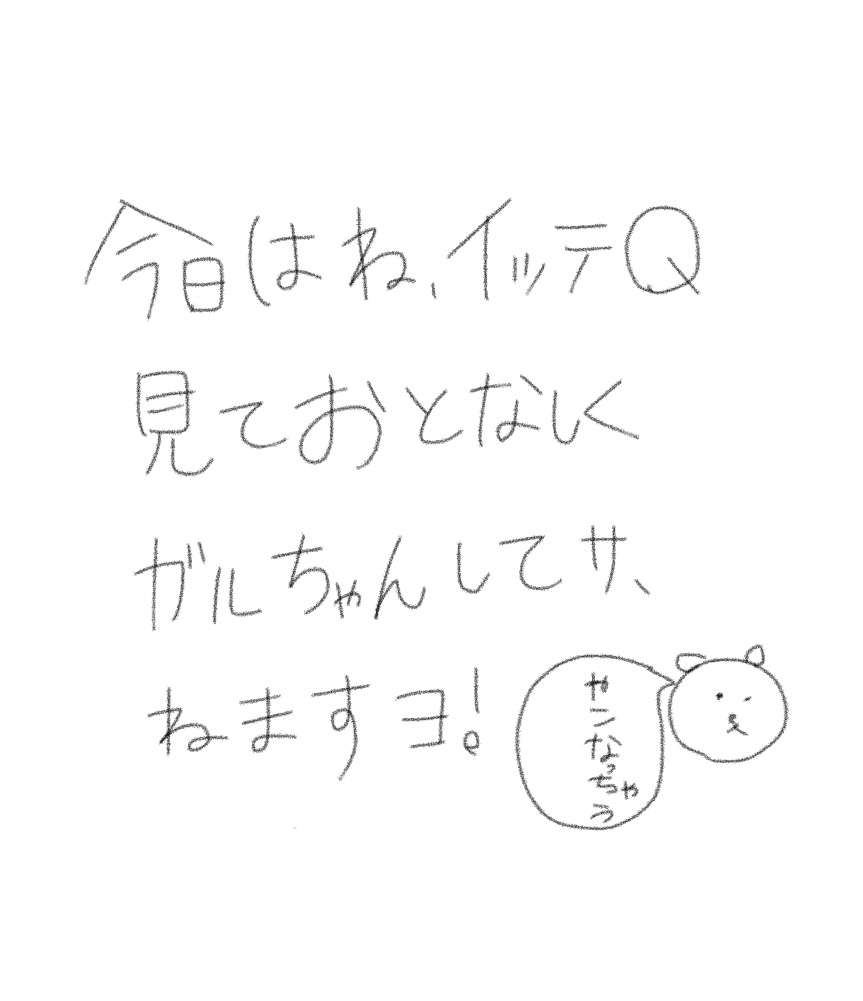 今日はね、イッテQ
見ておとなしく
ガルちゃんしてサ、
ねますヨ!
やンなっちゃう